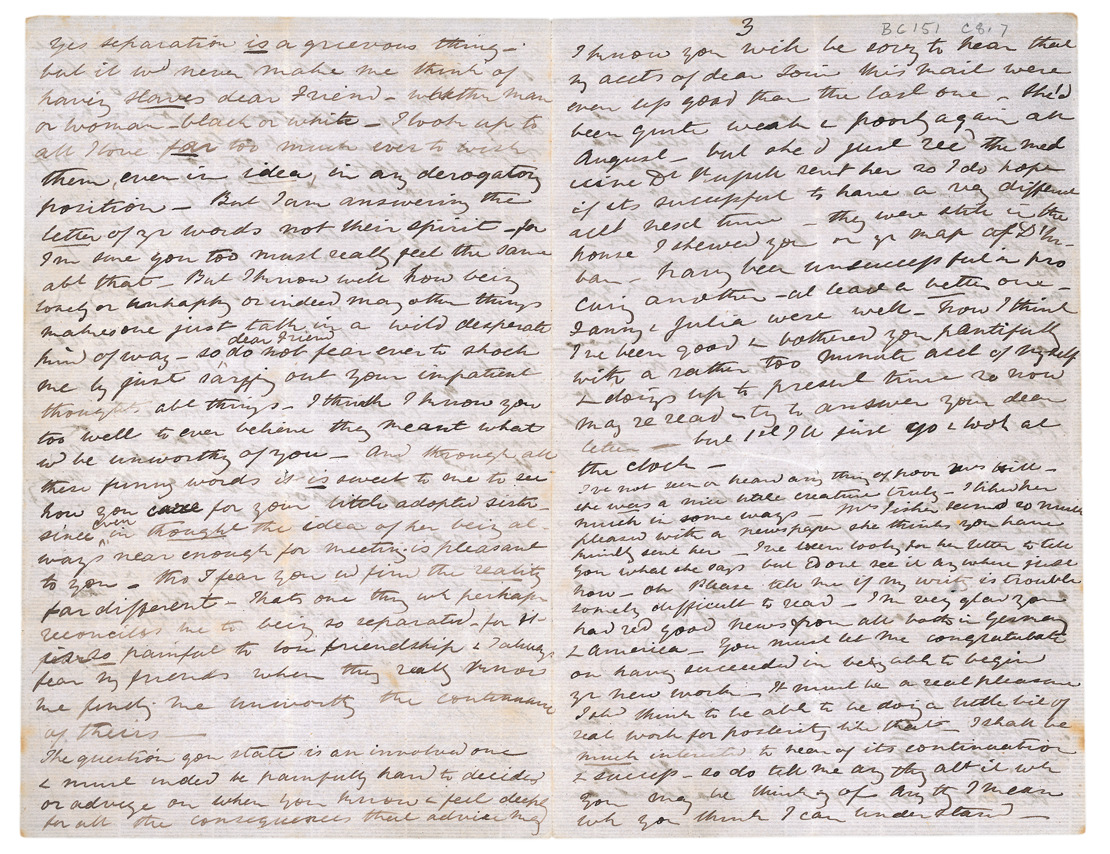 Yes separation is a grievous thing –
but it wd never make me think of
having slaves dear Friend – whether man
or woman – black or white – I look up to
all I love far too much ever to wish
them, even in idea, in any derogatory
position – But I am answering the
letter of yr words not their spirit – for
I'm sure you too must really feel the same
abt that – But I know well how being
lonely or unhappy or indeed many other things
makes one just talk in a wild desperate
kind of way – so dear Friend do not fear ever to shock
me by just saying out your impatient
thoughts abt things – I think I know you
too well to ever believe they meant what
wd be unworthy of you – And through all
these funny words it is sweet to me to see
how you care for your little adopted sister –
since even in though the idea of her being al-
ways near enough for meeting is pleasant
to you – tho I fear you wd find the reality
far different – Thats one thing wh perhaps
reconciles me to being so separated – for it
is so painful to lose friendship & I always
fear my friends when they really know
me finding me unworthy the continuance
of theirs –
The question you state is an involved one
& must indeed be painfully hard to decided
or advize on when you know & feel deeply
for all the consequences that advice may
3
BC151 C8.7
I know you will be sorry to hear that
my accts of dear this mail were
even less good than the last one – She'd
been quite weak & poorly again all
August – but she'd just recd the med
icine Dr sent her so I do hope
if its successful to have a very different
acct next time – they were still in the
house I shewed you on yr map of D'Ur-
ban – having been unsuccessful in pro
curing another – at least a better one –
Fanny & Julia were well – Now I think
I've been good & bothered you plentifully
with a rather too minute acct of myself
& doings up to present time so now
may re read – try to answer your dear
letter – but 1st I'll just go & look at
the clock –
I've not seen or heard any thing of poor Mrs –
she was a nice little creature truly – I liked her
much in some ways – Mrs Fisher seemed so much
pleased with a newspaper she thinks you have
kindly sent her – I've been looking for her letter to tell
you what she says but dont see it anywhere just
now – oh Please tell me if my writg is trouble
somely difficult to read – I'm very glad you
had recd good news from all both in Germany
& America – You must let me congratulate
on having succeeded in being able to begin
yr new work – It must be a real pleasure
I shd think to be able to be doing a little bit of
real work for posterity like that – I shall be
much interestd to hear of its continuation
& success – so do tell me any thg abt it wh
you may be thinking of Any thg I mean
wh you think I can understand –